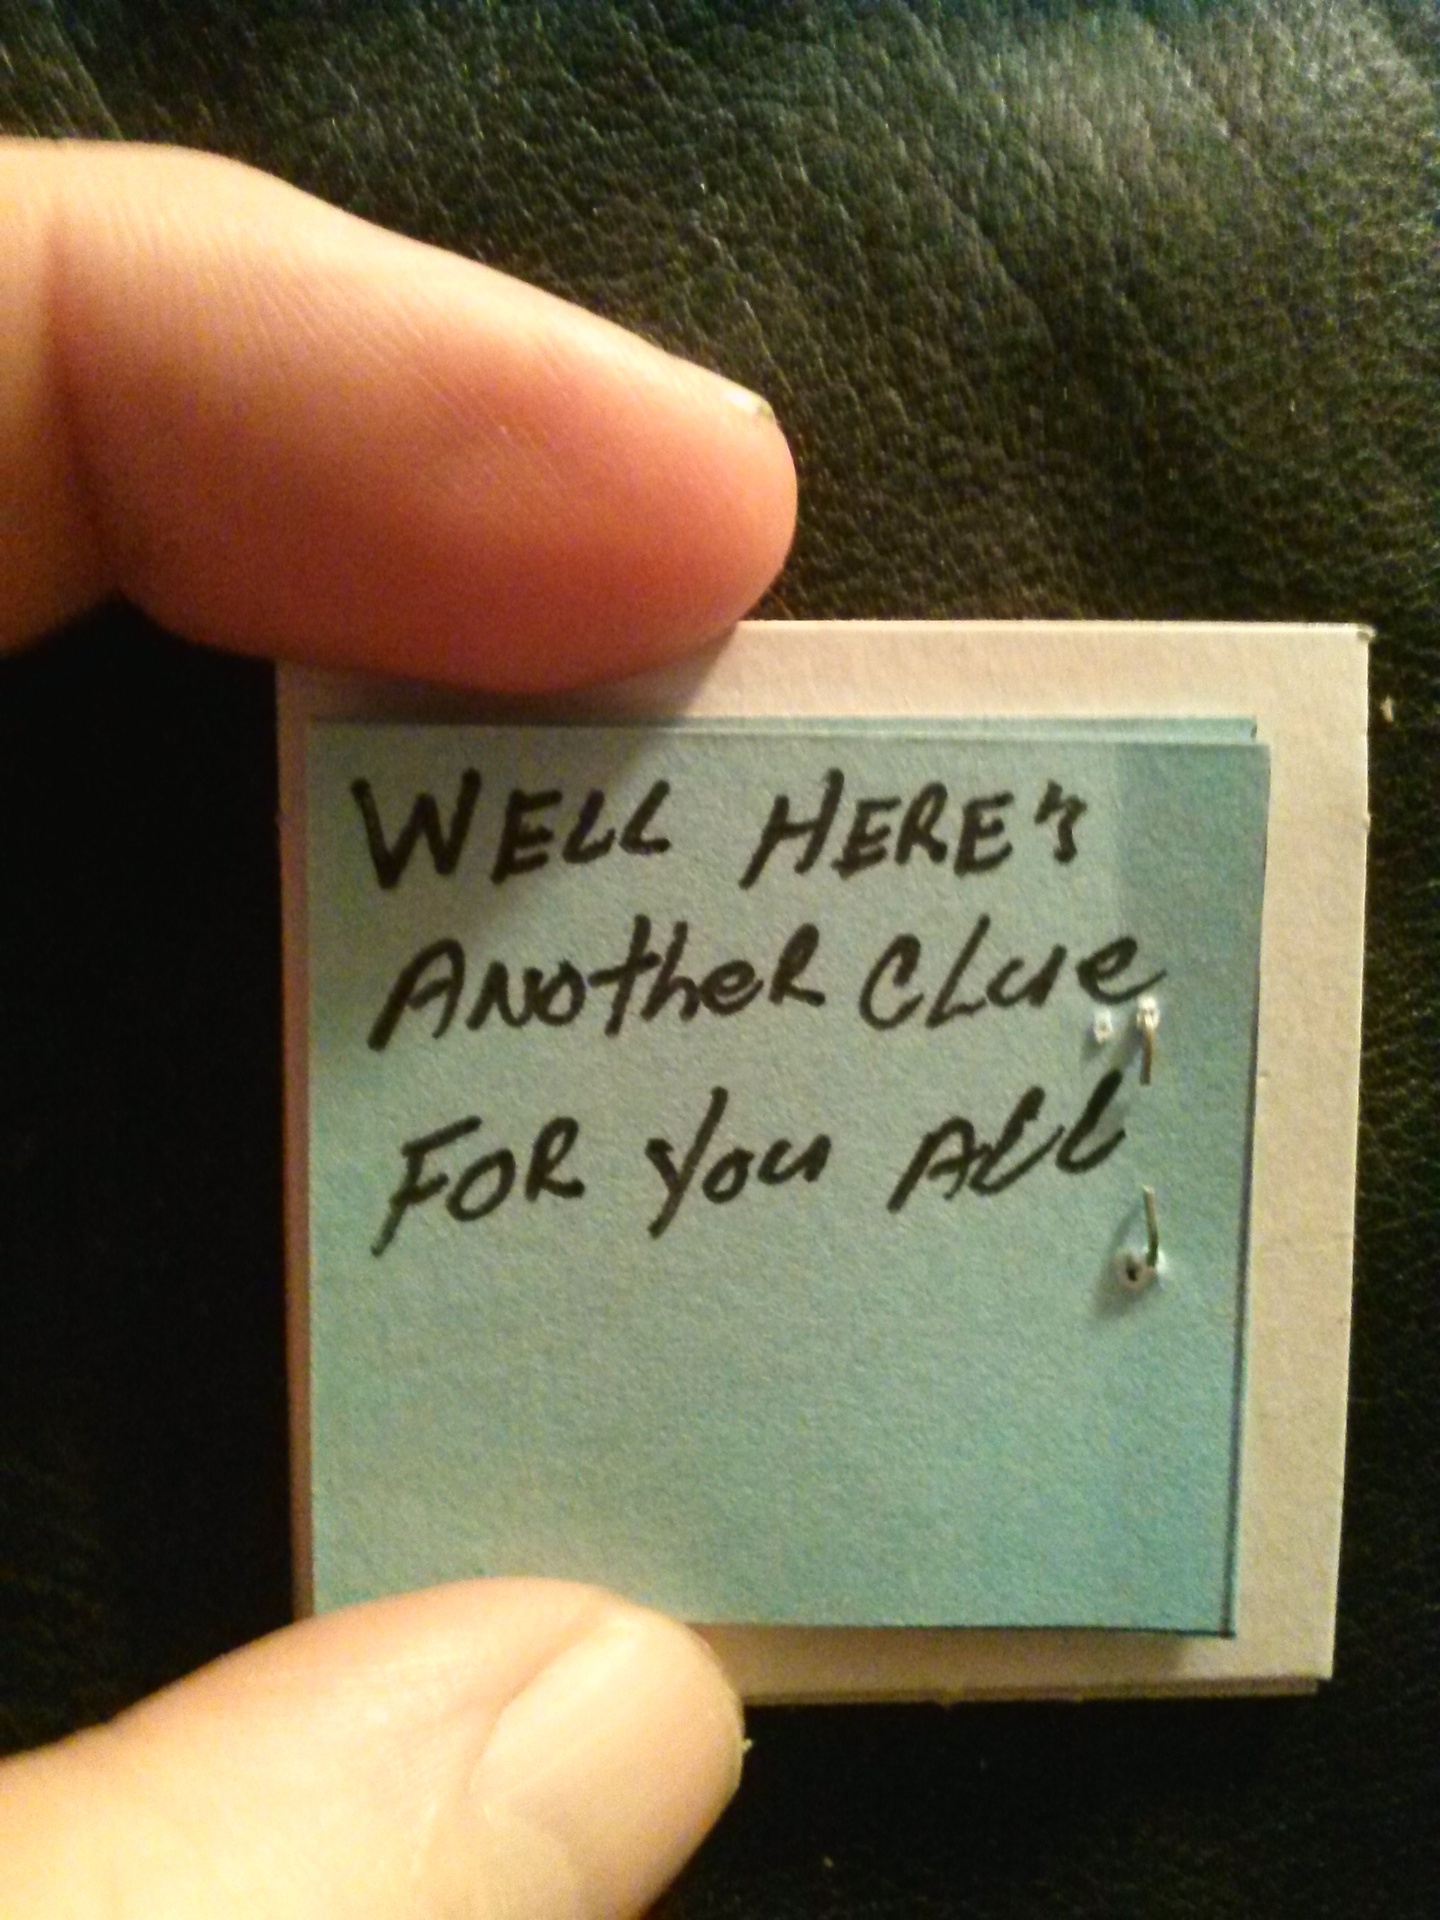 WELL HERE's
ANOtheR CLue
FOR You ALL